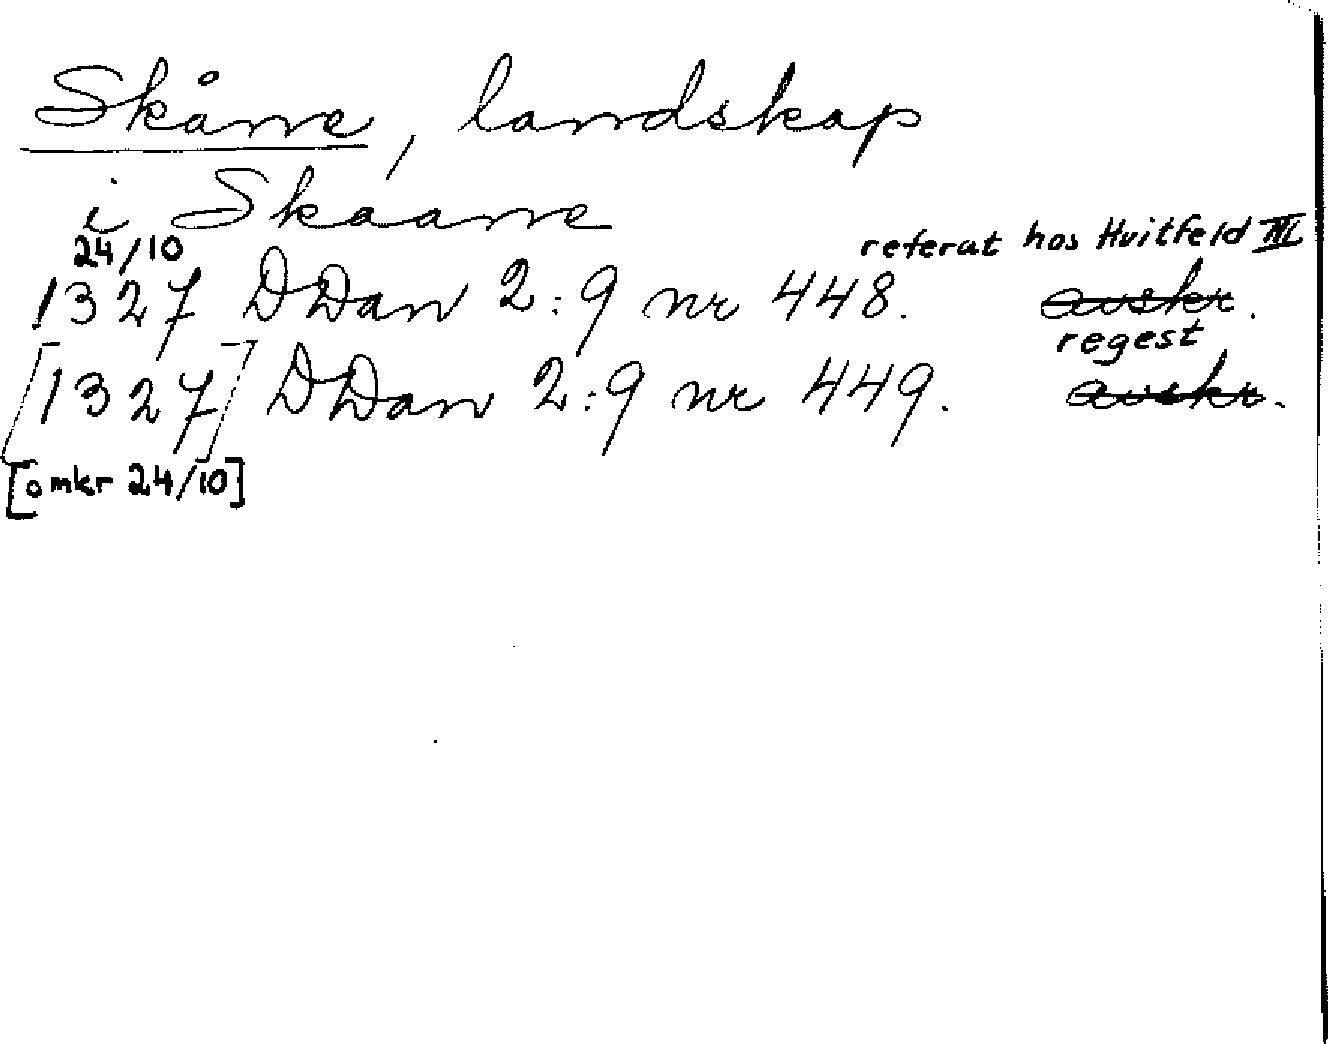 Skåne, landskap
i Skaane
24/10 referat hos Huitfeld III
1327 DDan 2:9 nr 448. avskr.
regest
[1327] DDan 2:9 nr 449. avskr.
[omkr 24/10]